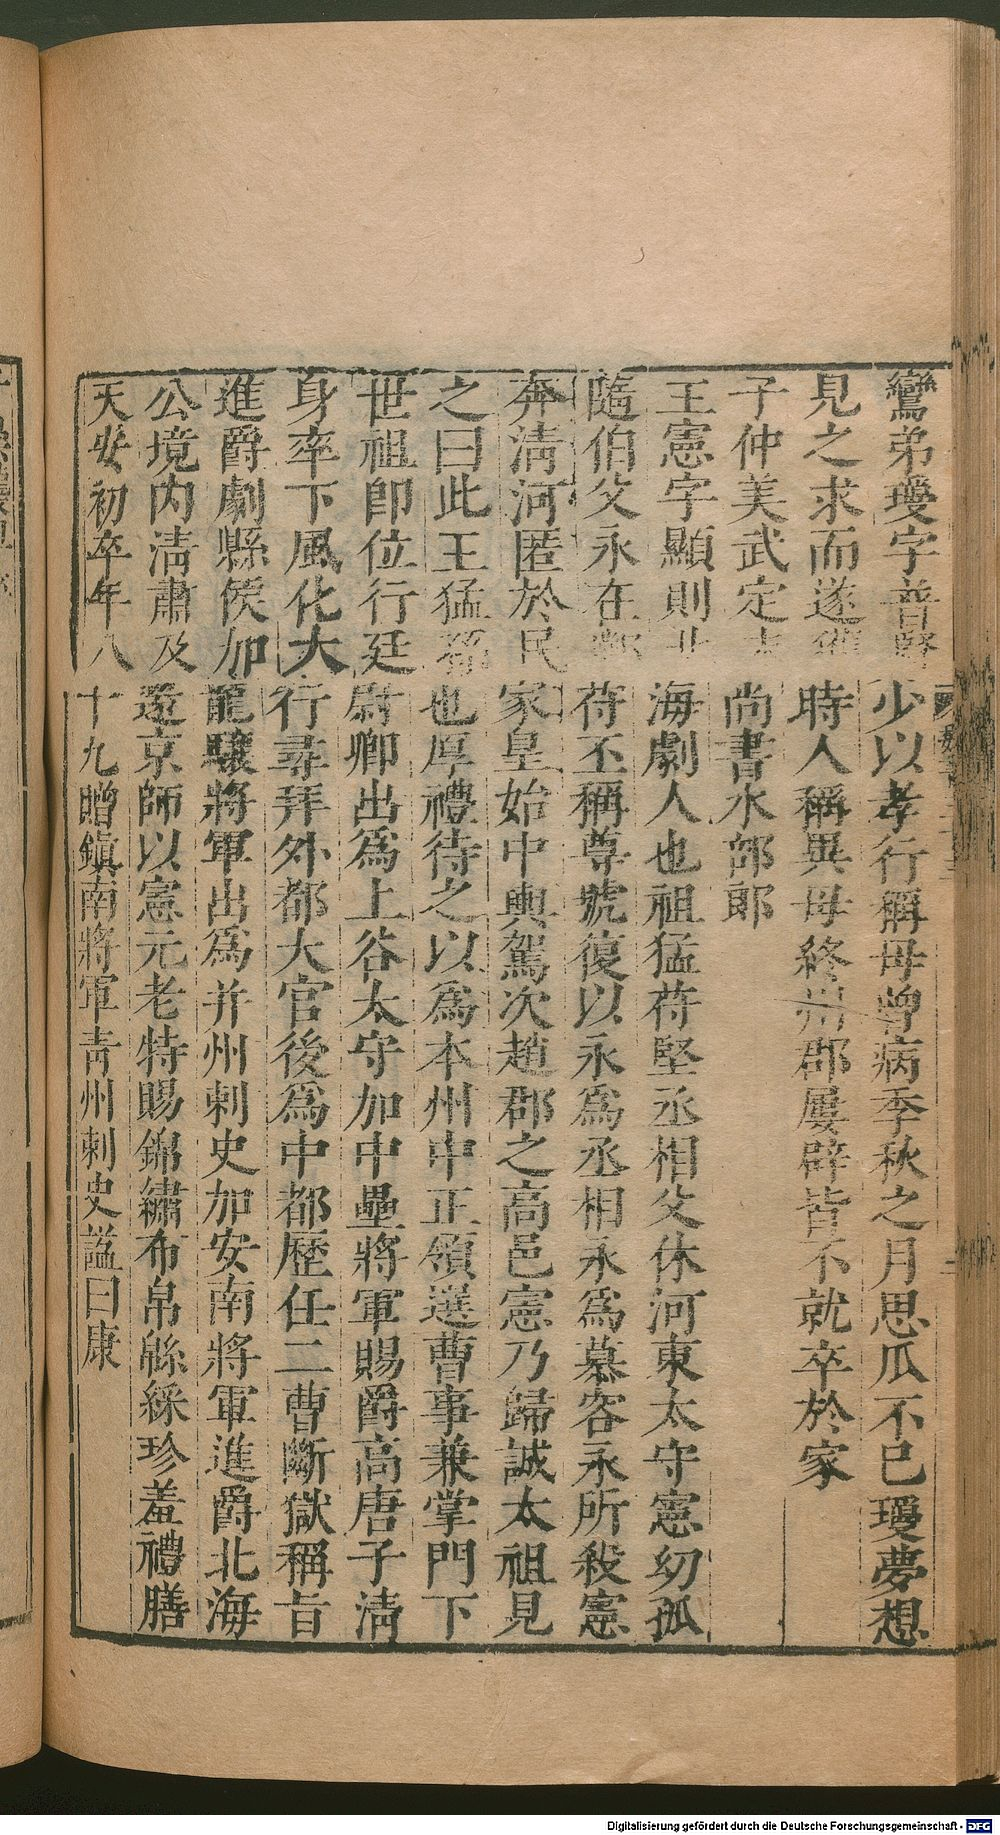 鸞弟瓊字普賢少以孝行稱母曾病季秋之月思瓜不已瓊夢想
見之求而遂獲時人稱異母終州郡屢辟皆不就卒於家
子仲美武定末尚書水部郎
王憲字顯則北海劇人也祖猛苻堅丞相父休河東太守憲幼孤
隨伯父永在鄴苻丕稱尊號復以永爲丞相永爲慕容永所殺憲
奔清河匿於民家皇始中輿駕次趙郡之高邑憲乃歸誠太祖見
之曰此王猛孫也厚禮待之以爲本州中正領選曹事兼掌門下
世祖即位行廷尉卿出爲上谷太守加中壘將軍賜爵高唐子清
身率下風化大行尋拜外都大官後爲中都歷任二曹斷獄稱旨
進爵劇縣侯加龍驤將軍出爲并州刺史加安南將軍進爵北海
公境內清肅及還京師以憲元老特賜錦繡布帛緜綵珍羞禮膳
天安初卒年八十九贈鎮南將軍青州刺史謚曰康
Digitalisierung gefördert durch die Deutsche Forschungsgemeinschaft - DFG